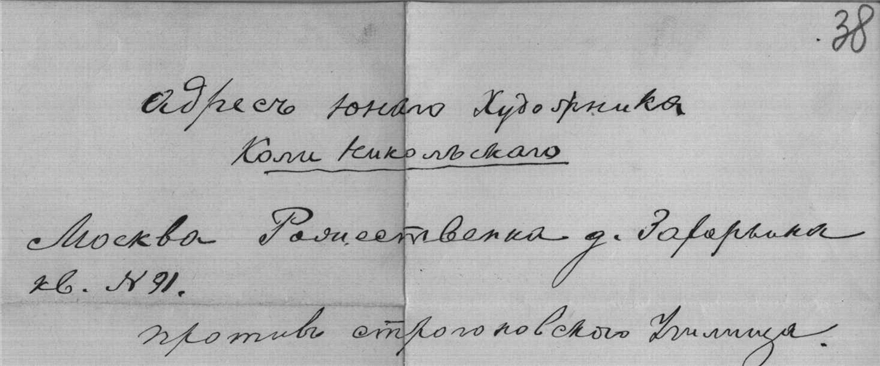 38
Адресъ юнаго Художника
Коли Никольскаго
Москва Рожественка д. Захарьина
кв. N 91.
противъ строгоновского Училища.